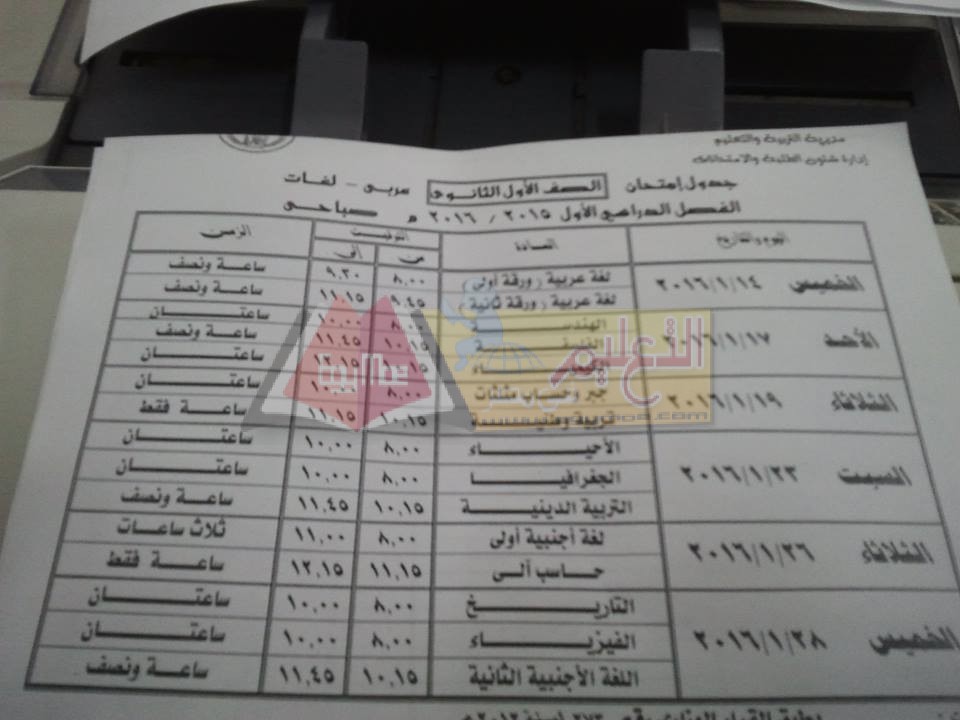 مديرية التربية والتعليم
إدارة شئون الطلبة والامتحانات
جدول إمتحان الصف الأول الثانوى عربى - لغات
الفصل الدراسي الأول ٢٠١٥ / ٢٠١٦ م صباحى
اليوم والتاريخ المادة التوقيت الزمن
من إلى
الخميس ٢٠١٦/١/١٤ لغة عربية (ورقة أولى) ٨,٠٠ ٩,٣٠ ساعة ونصف
لغة عربية (ورقة ثانية) ٩,٤٥ ١١,١٥ ساعة ونصف
الأحد ٢٠١٦/١/١٧ الهندسة ٨,٠٠ ١٠,٠٠ ساعتان
١٠,١٥ ١١,٤٥ ساعة ونصف
١٢,١٥ ساعتان
الثلاثاء ٢٠١٦/١/١٩ جبر وحساب مثلثات ٨,٠٠ ١٠,٠٠ ساعتان
تربية وطنية ١٠,١٥ ١١,١٥ ساعة فقط
السبت ٢٠١٦/١/٢٣ الأحياء ٨,٠٠ ١٠,٠٠ ساعتان
الجغرافيا ٨,٠٠ ١٠,٠٠ ساعتان
التربية الدينية ١٠,١٥ ١١,٤٥ ساعة ونصف
الثلاثاء ٢٠١٦/١/٢٦ لغة أجنبية أولى ٨,٠٠ ١١,٠٠ ثلاث ساعات
حاسب آلى ١١,١٥ ١٢,١٥ ساعة فقط
الخميس ٢٠١٦/١/٢٨ التاريخ ٨,٠٠ ١٠,٠٠ ساعتان
الفيزياء ٨,٠٠ ١٠,٠٠ ساعتان
اللغة الأجنبية الثانية ١٠,١٥ ١١,٤٥ ساعة ونصف
التعليم